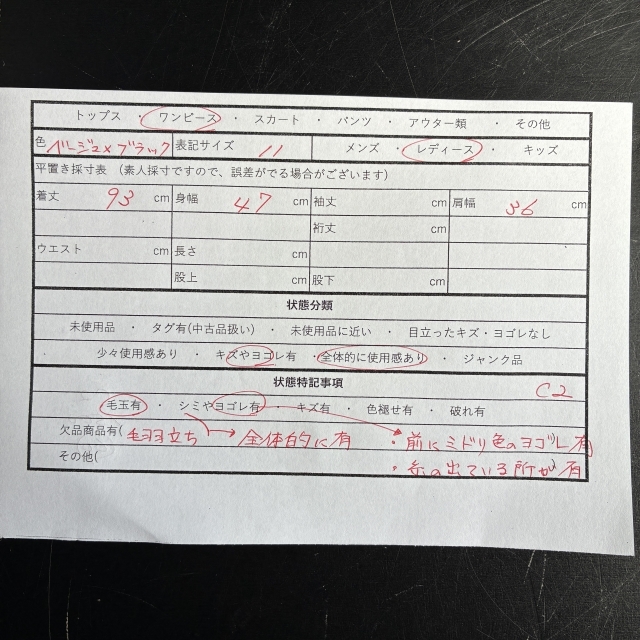 トップス ・ ワンピース ・ スカート ・ パンツ ・ アウター類 ・ その他
色 ベージュ×ブラック 表記サイズ 11 メンズ ・ レディース ・ キッズ
平置き採寸表 （素人採寸ですので、誤差がでる場合がございます）
着丈 93 cm 身幅 47 cm 袖丈 cm 肩幅 36 cm
裄丈 cm
ウエスト cm 長さ cm
股上 cm 股下 cm
状態分類
未使用品 ・ タグ有(中古品扱い) ・ 未使用品に近い ・ 目立ったキズ・ヨゴレなし
少々使用感あり ・ キズやヨゴレ有 ・ 全体的に使用感あり ・ ジャンク品
状態特記事項 C2
毛玉有 ・ シミやヨゴレ有 ・ キズ有 ・ 色褪せ有 ・ 破れ有
欠品商品有( 毛羽立ち → 全体的に有 ・前にミドリ色のヨゴレ有
その他( ・糸の出ている所が有